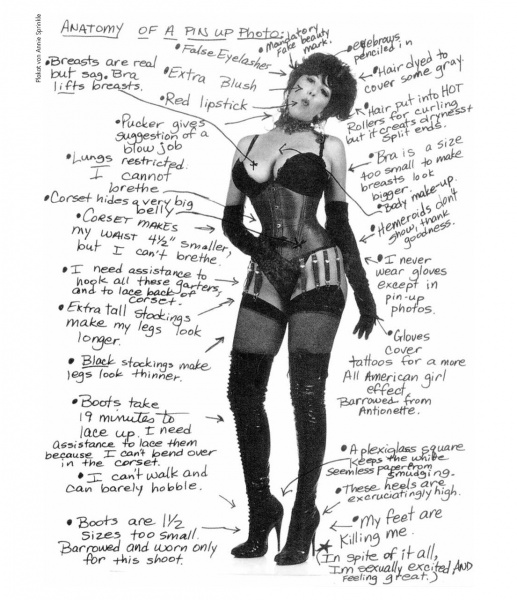 Plakat von Annie Sprinkle
ANATOMY OF A PIN UP PHOTO:
• False Eyelashes
• Mandatory
Fake beauty
mark.
• eyebrows
penciled in
• Breasts are real
but sag. Bra
lifts breasts.
• Extra Blush
• Red lipstick
• Hair dyed to
cover some gray.
• Pucker gives
suggestion of a
blow job
• Hair put into HOT
Rollers for curling
but it creats dryness+
Split ends.
• Lungs restricted.
I cannot
brethe
• Bra is a size
too small to make
breasts look
bigger.
• Body make-up.
Corset hides a very big
belly
• Hemeroids don't
show, thank
goodness.
• CORSET MAKES
my WAIST 4½" smaller,
but I can't brethe.
• I never
wear gloves
except in
pin-up
photos.
• I need assistance to
hook all these garters,
and to lace back of
corset.
• Extra tall Stockings
make my legs look
longer.
• Gloves
cover
tattoos for a more
All American girl
effect
Barrowed from
Antionette.
• Black stockings make
legs look thinner.
• Boots take
19 minutes to
lace up. I need
assistance to lace them
because I can't bend over
in the corset.
• I can't walk and
can barely hobble.
• A plexiglass square
keeps the white
seamless paper from
smudging.
• These heels are
excruciatingly high.
• Boots are 1½
sizes too small.
Barrowed and worn only
for this shoot.
• My feet are
Killing me.
(In spite of it all,
I'm sexually excited AND
feeling great.)